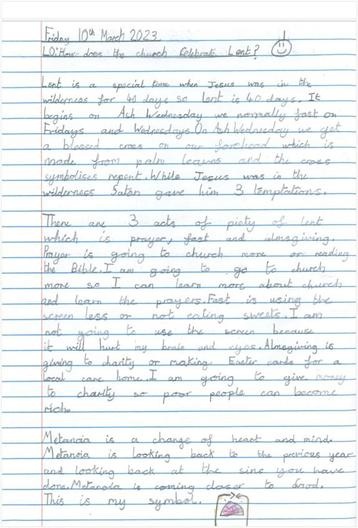 Friday 10th March 2023
LO: How does the church celebrate Lent?
Lent is a special time when Jesus was in the
wilderness for 40 days so lent is 40 days. It
begins on Ash Wednesday we normally fast on
Fridays and Wednesdays. On Ash Wednesday we get
a blessed cross on our forehead which is
made from palm leaves and the cross
symbolises repent. While Jesus was in the
wilderness Satan gave him 3 temptations.
There are 3 acts of piety of lent
which is prayer, fast and almsgiving.
Prayer is going to church more or reading
the Bible. I am going to go to church
more so I can learn more about church
and learn the prayers. Fast is using the
screen less or not eating sweets. I am
not going to use the screen because
it will hurt my brain and eyes. Almsgiving is
giving to charity or making Easter cards for a
local care home. I am going to give money
to charity so poor people can become
rich.
Metanoia is a change of heart and mind.
Metanoia is looking back to the previous year
and looking back at the sins you have
done. Metanoia is coming closer to God.
This is my symbol.